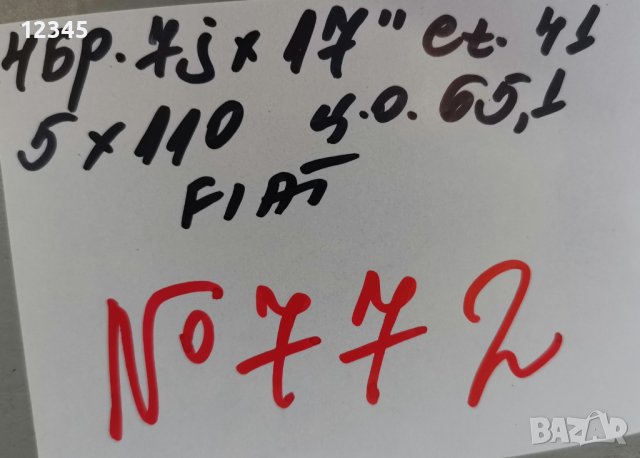 12345
4бр. 7j x 17" et. 41
5 x 110 ц.о. 65,1
FIAT
№ 772
BAZAR